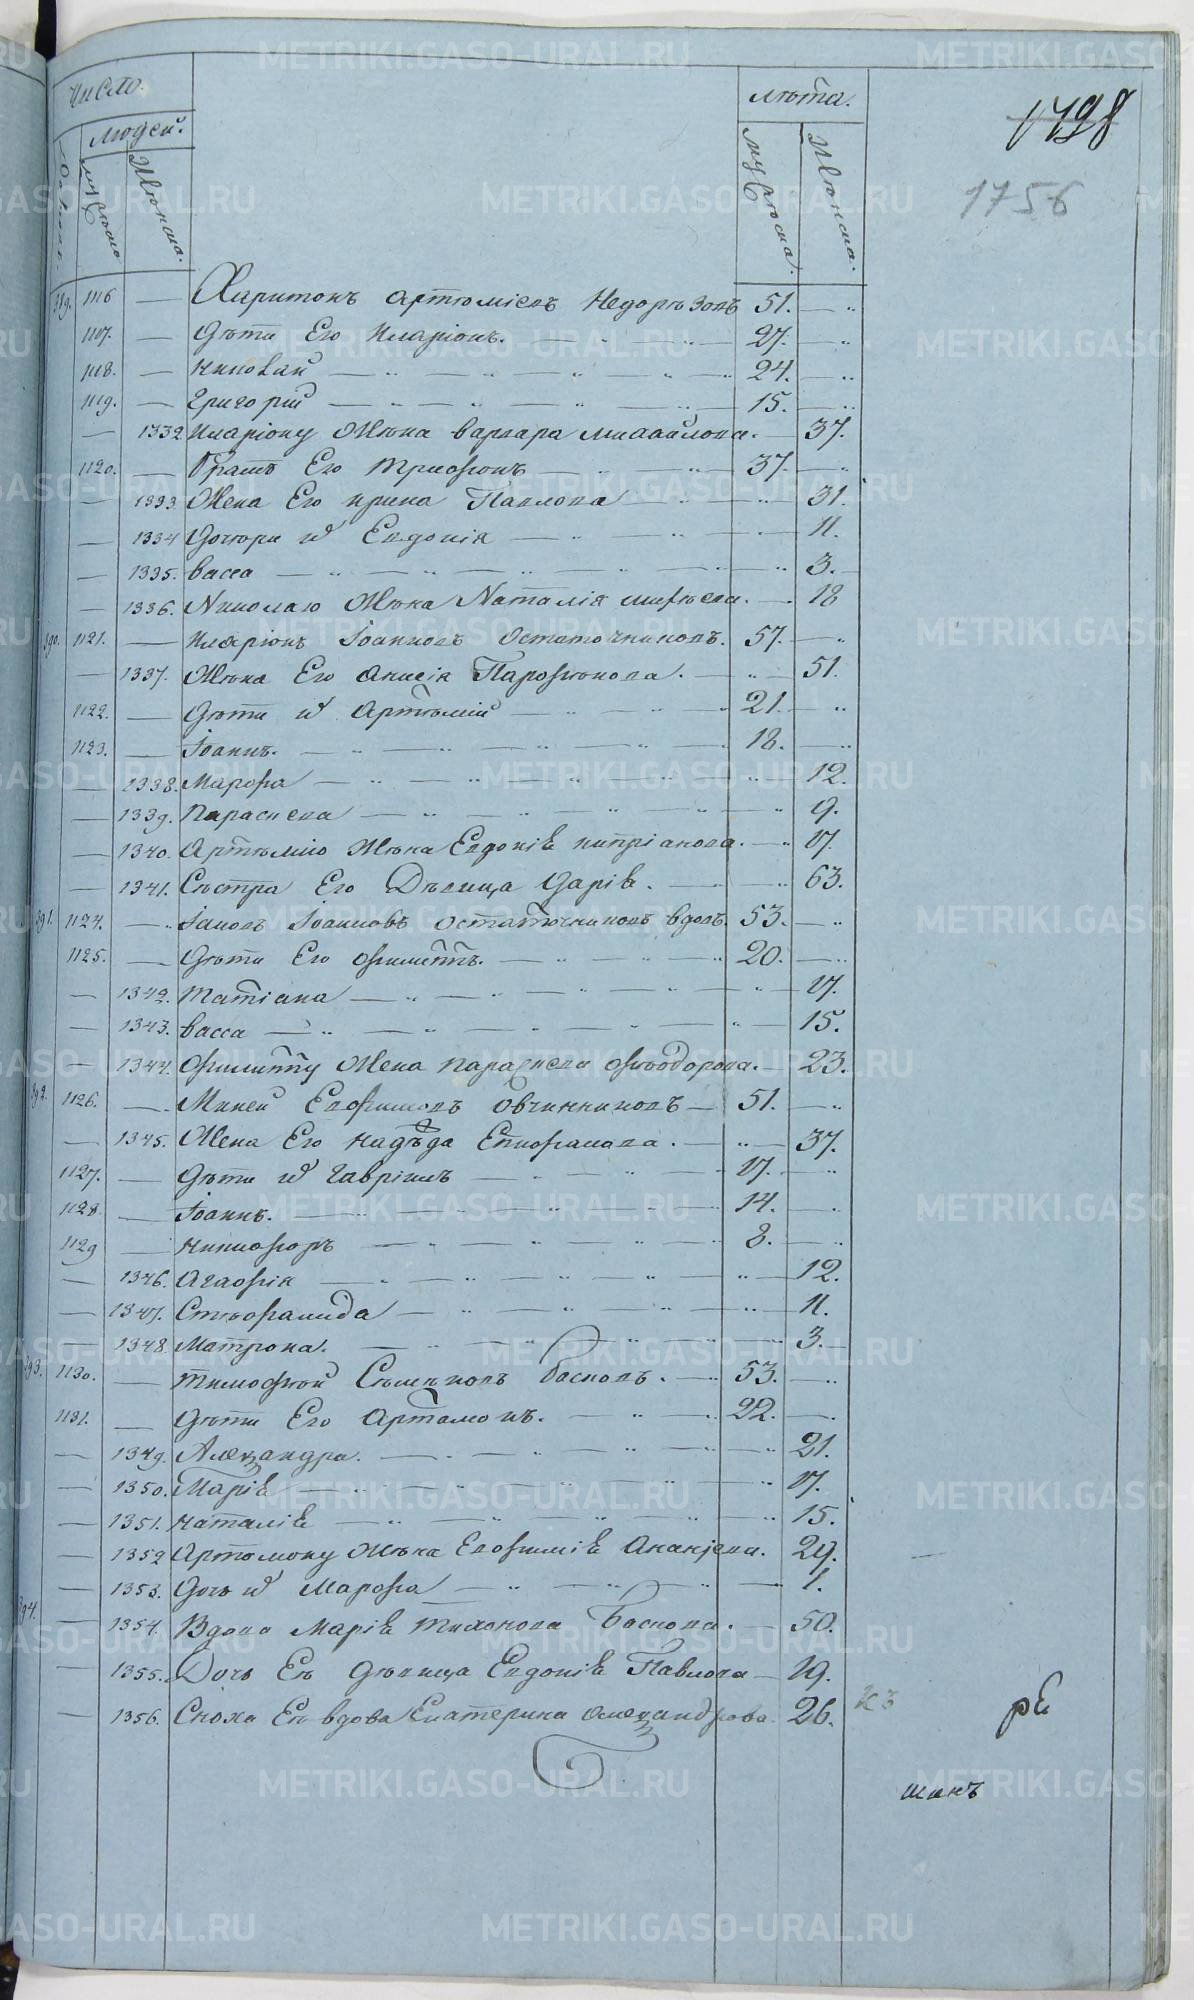 Число.
Людей.
мужеска
Женска.
Лѣта.
мужеска.
Женска.
1798
1756
389. 1116 — Харитонъ Артѣміевъ Недорѣзовъ 51. — „
1117. — Дѣти Его Иларіонъ. — „ — 27. — „
1118. — Николай — „ — „ — 24. — „
1119. — Григорій — „ — „ — 15. — „
— 1332 Иларіону Жѣна варвара михайлова. — 37.
1120. — Братъ Его Трифонъ — „ — 37. — „
— 1333. Жена Его ирина Павлова — „ — 31.
— 1334 Дочери их Евдокія — „ — 11.
— 1335. Васса — „ — „ — 3.
— 1336. Николаю Жѣна Наталія — 18
390. 1121. — Иларіонъ Іоанновъ Остаточниковъ. 57. — „
— 1337. Жѣна Его Анисія Парфѣнова. — „ — 51.
1122. — Дѣти их Артѣмій — „ — 21. — „
1123. — Іоаннъ. — „ — „ — 18. — „
— 1338. Марфа — „ — „ — 12.
— 1339. Параскева — „ — „ — 9.
— 1340. Артѣмію Жѣна Евдокія кипріанова. — „ 17.
— 1341. Сѣстра Его Дѣвица Дарія. — „ 63.
391. 1124. — Іаковъ Іоанновъ Остаточниковъ вдовъ. 53. — „
1125. — Дѣти Его Филиппъ. — „ — 20. — „
— 1342. Татіана — „ — „ — 17.
— 1343. Васса — „ — „ — 15.
— 1344. Филиппу Жена Параскева Фѣодорова. — 23.
392. 1126. — Михей Евфимовъ Овчинниковъ — 51. — „
— 1345. Жена Его Надѣжда Епифанова. — „ — 37.
1127. — Дѣти их Гавріилъ — „ — 17. — „
1128. — Іоаннъ. — „ — „ — 14. — „
1129 — Никифоръ — „ — „ — 8. — „
— 1346. Агафія — „ — „ — 12.
— 1347. Стѣфанида — „ — „ — 11.
— 1348. Матрона. — „ — „ — 3.
393. 1130. — Тимофѣй Сѣмѣновъ Басковъ. — „ 53. — „
1131. — Дѣти Его Артамонъ. — „ — 22. — „
— 1349. Александра. — „ — „ — 21.
— 1350. Марія — „ — „ — 17.
— 1351. Наталія — „ — „ — 15.
— 1352 Артомону Жѣна Евфимія Ананіева. 29.
— 1353. Дочь их Марфа — „ — „ — 1.
394. — 1354. Вдова Марія Тихонова Баскова. — 50.
— 1355. Дочь Еѣ дѣвица Евдокія Павлова — 19.
— 1356. Сноха Еѣ вдова Екатерина Александрова. 26.
шанъ
METRIKI.GASO-URAL.RU